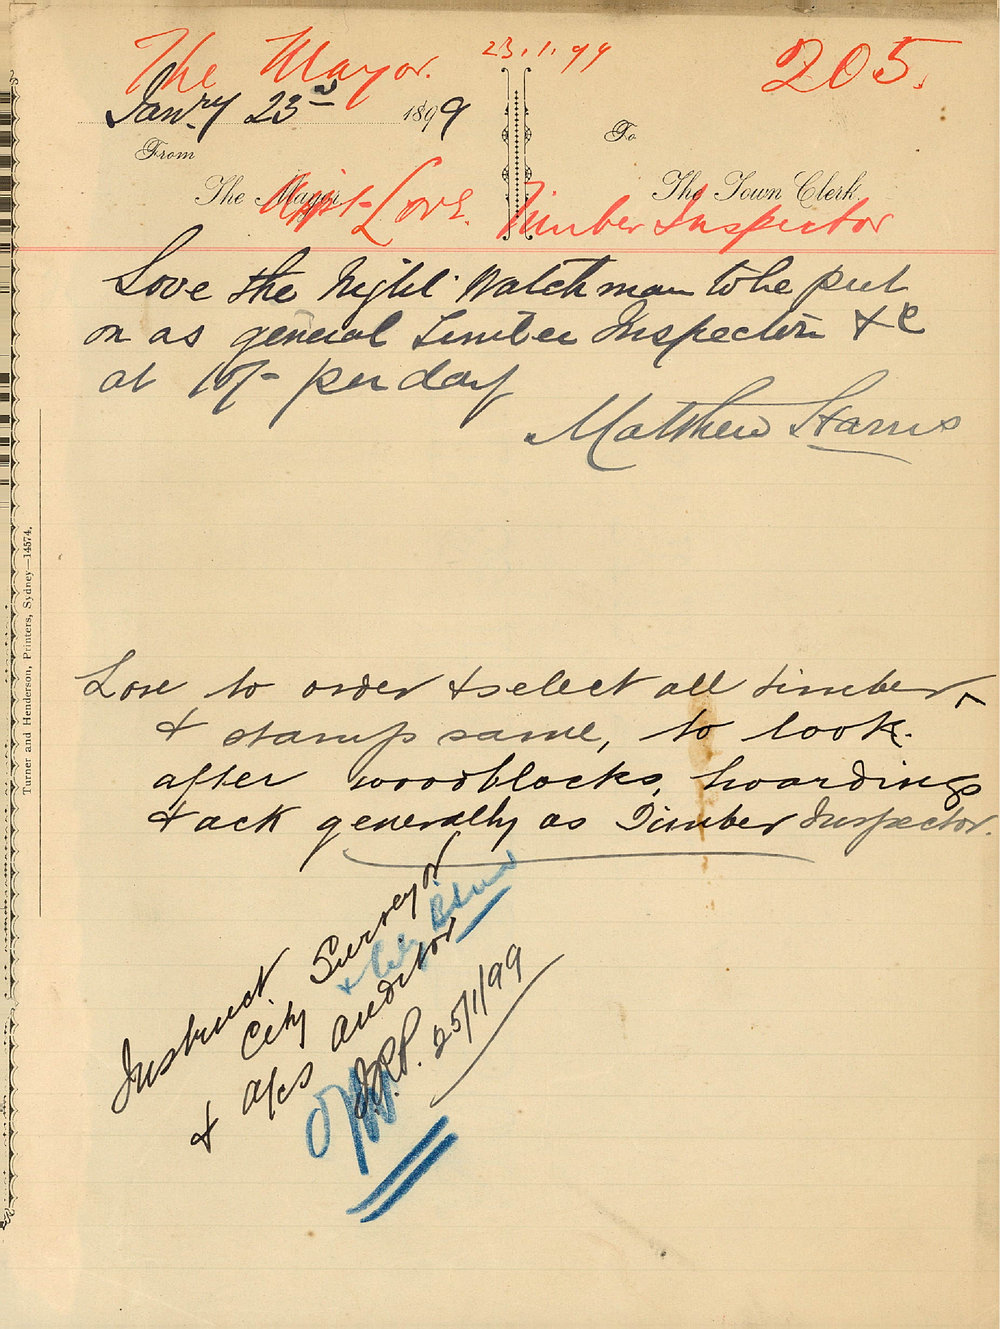 The Mayor.
23.1.99
205.
Janry 23rd 1899
From
To
The Mayor
The Town Clerk
Appt - Love. Timber Inspector
Love the Night Watchman to be put
on as general Timber Inspector &c
at 10/- per day
Matthew Harris
Turner and Henderson, Printers, Sydney—14574.
Love to order & select all timber
& stamp same, to look
after woodblocks, hoardings
& ack generally as Timber Inspector.
Instruct Surveyor
& City
City
& a/cs auditor
25/1/99